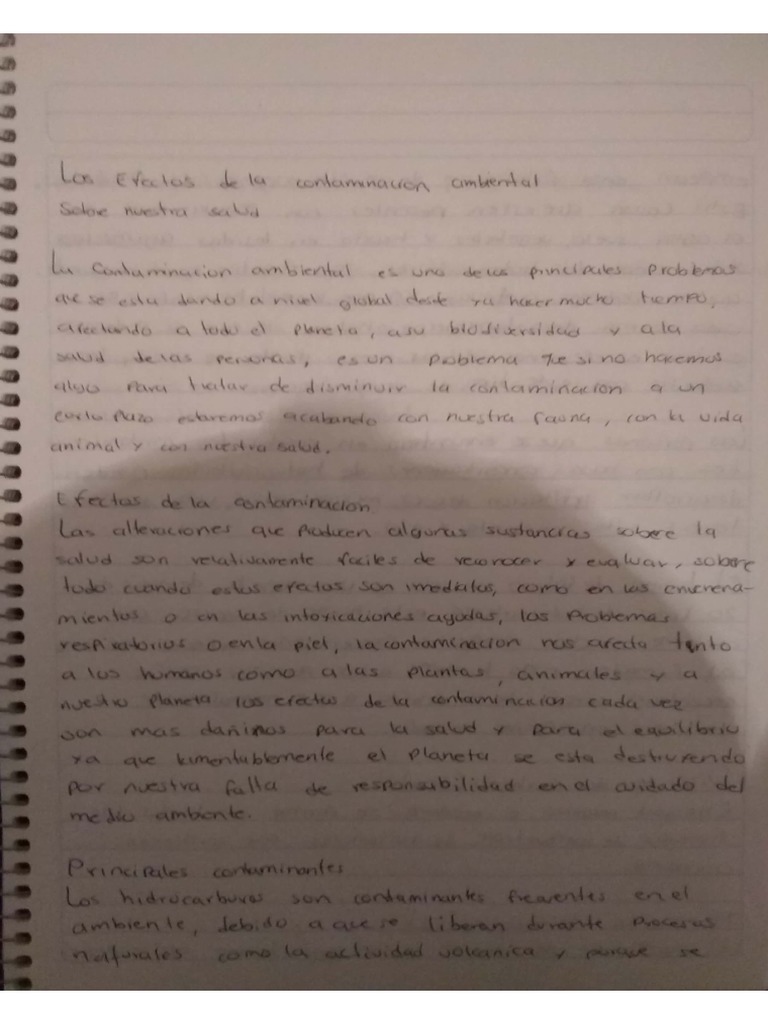 Los Efectos de la contaminacion ambiental
Sobre nuestra salud
La Contaminacion ambiental es uno de los principales Problemas
que se esta dando a nivel global desde ya hacer mucho tiempo,
afectando a todo el Planeta, a su biodiversidad y a la
salud de las personas, es un problema que si no hacemos
algo para tratar de disminuir la contaminacion a un
corto plazo estaremos acabando con nuestra fauna, con la vida
animal y con nuestra salud.
Efectos de la contaminacion
Las alteraciones que Producen algunas sustancias sobere la
salud son relativamente faciles de reconocer y evaluar, sobere
todo cuando estos efectos son imediatos, como en los envenena-
mientos o en las intoxicaciones agudas, los Problemas
respiratorios o en la piel, la contaminacion nos afecta tanto
a los humanos como a las plantas, animales y a
nuestro Planeta los efectos de la contaminacion cada vez
son mas dañinos para la salud y para el equilibrio
ya que lamentablemente el planeta se esta destruyendo
por nuestra falta de responsabilidad en el cuidado del
medio ambiente.
Principales contaminantes
Los hidrocarburos son contaminantes frecuentes en el
ambiente, debido a que se liberan durante procesos
naturales como la actividad volcanica y porque se